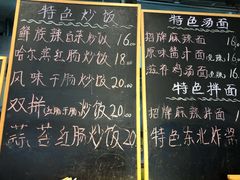 特色炒饭
鲜族辣白菜炒饭 16.
哈尔滨红肠炒饭 18.
风味干肠炒饭 20.00
双拼(红肠干肠)炒饭 20.00
蒜苔红肠炒饭 20
特色汤面
招牌麻辣面 16.
原味酱汁面
滋养鸡汤面
特色拌面
招牌麻辣拌面
特色东北炸酱